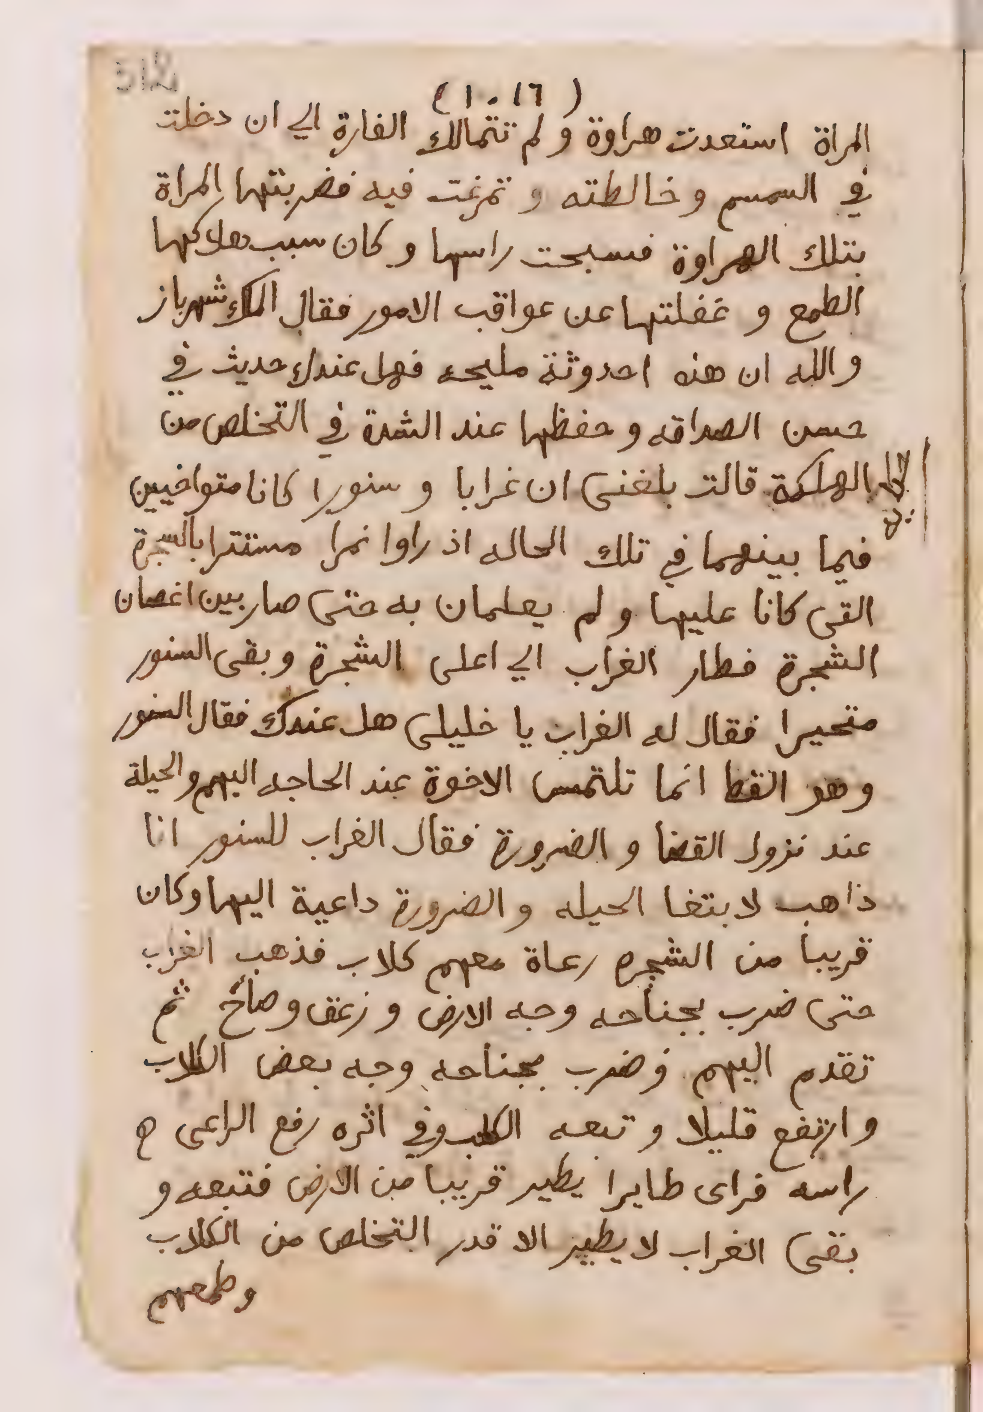 512
(١٠١٦)
المراة استعدت هراوة و لم تتمالك الفارة الي ان دخلت
في السمسم و خالطته و تمرغت فيه فضربتها المراة
بتلك الهراوة فسبحت راسها و كان سبب هلاكها
الطمع و غفلتها عن عواقب الامور فقال الملك شهرباز
و الله ان هذه احدوثة مليحه فهل عندك حديث في
حسن الصداقه و حفظها عند الشدة في التخلص من
الهلكة قالت بلغنى ان غرابا و سنورا كانا متواخيين
فيما بينهما في تلك الحاله اذ راوا نمرا مستترا بالشجرة
التى كانا عليها و لم يعلمان به حتى صار بين اغصان
الشجرة فطار الغراب الي اعلى الشجرة و بقى السنور
متحيرا فقال له الغراب يا خليلى هل عندك فقال السنور
و هو القط انما تلتمس الاخوة عند الحاجه اليهم و الحيلة
عند نزول القضا و الضرورة فقال الغراب للسنور انا
ذاهب لابتغا الحيله و الضرورة داعية اليها وكان
قريبا من الشجره رعاة معهم كلاب فذهب الغراب
حتى ضرب بجناحه وجه الارض و زعق وصاح ثم
تقدم اليهم و ضرب بجناحه وجه بعض الكلاب
و ارتفع قليلا و تبعه الكلب وفي اثره رفع الراعى
راسه فراى طايرا يطير قريبا من الارض فتبعه و
بقى الغراب لا يطير الا قدر التخلص من الكلاب
وطمعهم